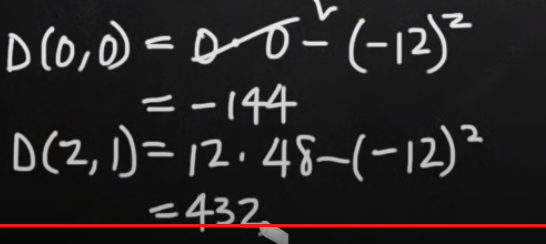 D(0,0) = 0·0 - (-12)²
= -144
D(2,1) = 12·48 - (-12)²
= 432